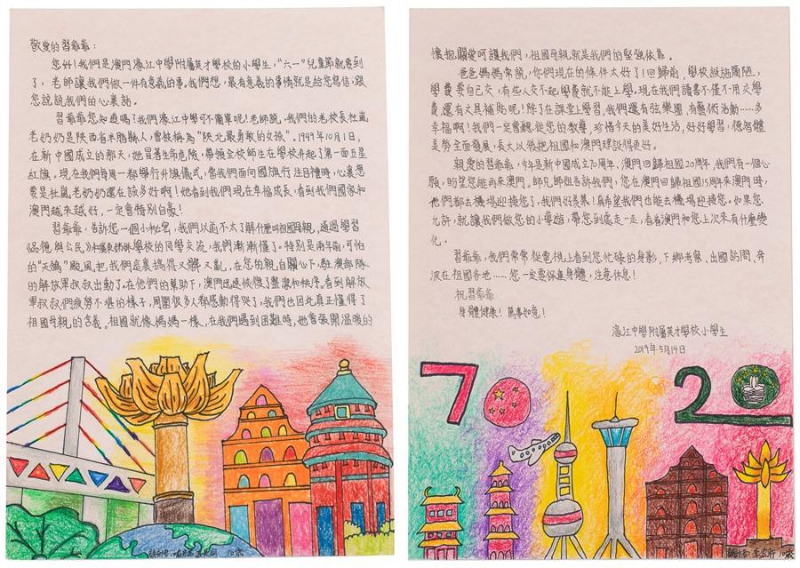 敬愛的習爺爺:
您好!我們是澳門濠江中學附屬英才學校的小學生，“六一”兒童節就要到
了，老師讓我們做一件有意義的事。我們想，最有意義的事情就是給您寫信，跟
您說說我們的心裏話。
習爺爺您知道嗎?我們濠江中學可不簡單呢!老師說，我們的老校長杜嵐
老奶奶是陝西省米脂縣人，曾被稱為“陝北最勇敢的女孩”。1949年10月1日，
在新中國成立的那天，她冒着生命危險，帶領全校師生在學校升起了第一面五星
紅旗，現在我們每周一都舉行升旗儀式，當我們面向國旗行注目禮時，心裏想
要是杜嵐老奶奶還在該多好啊!她看到我們現在幸福成長，看到我們國家和
澳門越來越好，一定會特別自豪!
習爺爺，告訴您一個小秘密，我們以前不太了解什麼叫祖國母親，通過學習
《品德與公民》和 學校的同學交流，我們漸漸懂了。特別是兩年前，可怕
的“天鴿”颱風把我們這裏搞得又髒又亂，在您的親自關心下，駐澳部隊
的解放軍叔叔出動了，在他們的幫助下，澳門迅速恢復了整潔和秩序。看到解放
軍叔叔們疲勞不堪的樣子，周圍很多人都感動得哭了，我們也因此真正懂得了
祖國母親的含義。祖國就像媽媽一樣，在我們遇到困難時，她會張開溫暖的
懷抱，關愛呵護我們，祖國母親就是我們的堅強依靠。
爸爸媽媽常說，你們現在的條件太好了!回歸前，學校設施簡陋，
學費要自己交，有些人交不起學費就不能上學。現在我們讀書不僅不用交學
費，還有文具補貼呢!除了在課堂上學習，我們還有弦樂團，有藝術活動……多
幸福啊!我們一定會聽從您的教導，珍惜今天的美好生活，好好學習，德智體
美勞全面發展，長大以後把祖國和澳門建設得更好。
親愛的習爺爺，今年是新中國成立70周年、澳門回歸祖國20周年，我們有一個心
願，盼望您能再來澳門。師兄師姐告訴我們，您在澳門回歸祖國15周年來澳門時，
他們都去機場迎接您了，我們好羨慕!真希望我們也能去機場迎接您。如果您
允許，就讓我們做您的小導遊，帶您到處走一走，看看澳門和您上次來有什麼變
化。
習爺爺，我們常常從電視上看到您忙碌的身影，下鄉考察、出國訪問，奔
波在祖國各地……您一定要保重身體，注意休息!
祝習爺爺
身體健康!萬事如意!
濠江中學附屬英才學校小學生
2019年5月19日
70 20